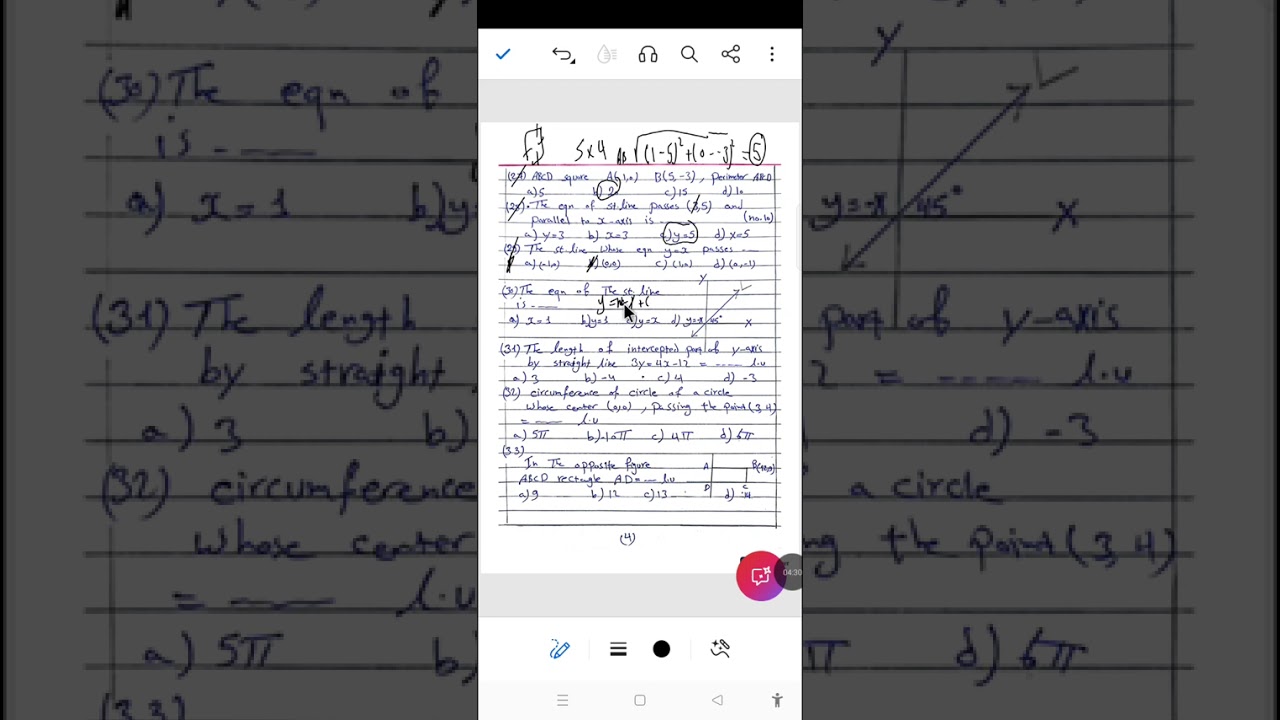 5x4 AB √(1-5)²+(0--3)² = 5
ABCD square A(1,0) B(5,-3), perimeter ABCD
a) 5 b) 2 c) 15 d) 10
The eqn of st.line passes (3,5) and
parallel to x-axis is (no.10)
a) y=3 b) x=3 c) y=5 d) x=5
The st.line whose eqn y=x passes ----
(0,0) c) (1,0) d) (0,-1)
(30) The eqn of The st.line
is ----
y =
a) x=1 b) y=1 c) y=x d) y=-x 45° x
y
(31) The length of intercepted part of y-axis
by straight line 3y=4x-12 = ---- l.u
a) 3 b) -4 c) 4 d) -3
(32) circumference of circle of a circle
whose center (0,0), passing the point (3,4)
= ---- l.u
a) 5π b) 10π c) 4π d) 6π
(33)
In The opposite figure A
ABCD rectangle AD= --- l.u D C
a) 9 b) 12 c) 13 d)
(4)
04:30